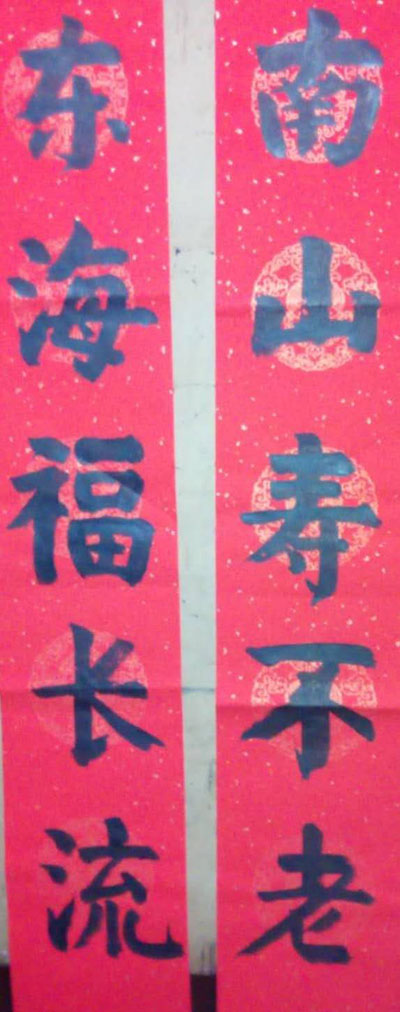 南山寿不老
东海福长流